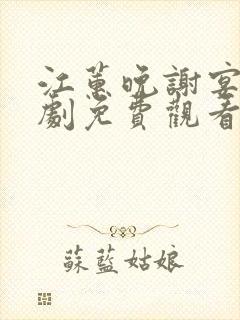 江蕙晚謝宴
劇免費觀看
蘇藍姑娘